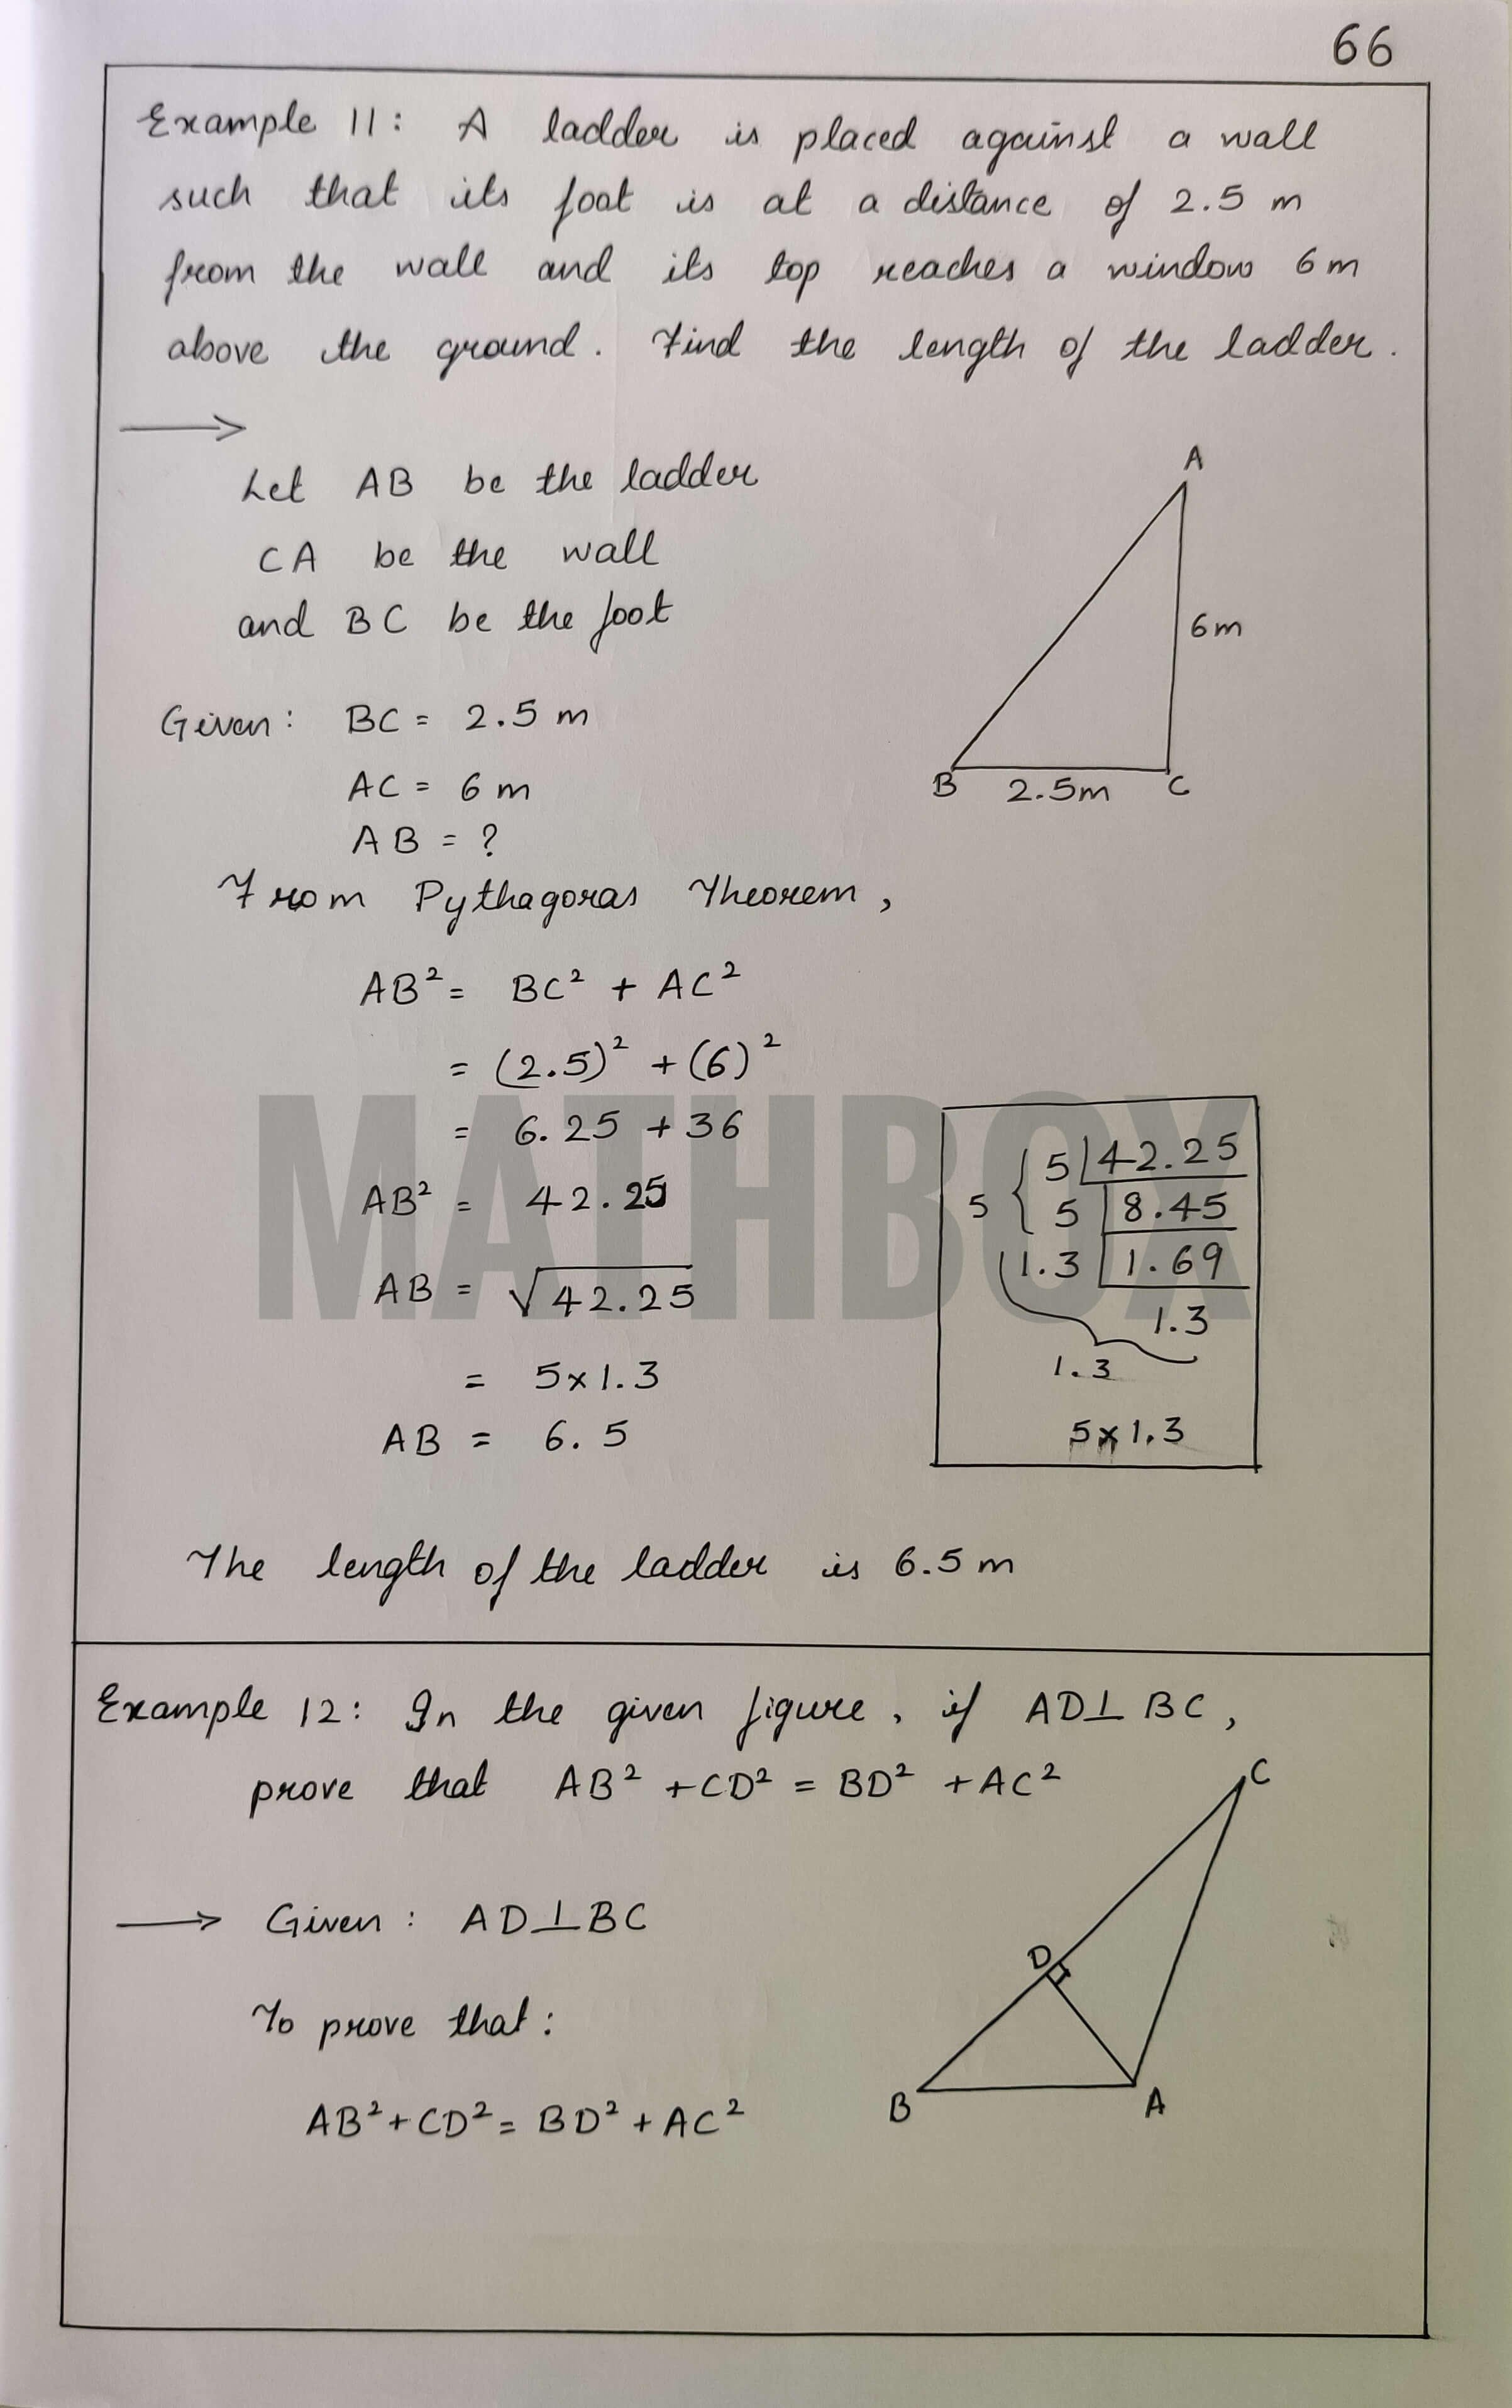 66
Example 11: A ladder is placed against a wall
such that its foot is at a distance of 2.5 m
from the wall and its top reaches a window 6m
above the ground. Find the length of the ladder.
Let AB be the ladder
CA be the wall
and BC be the foot
A
6m
B 2.5m C
Given: BC = 2.5 m
AC = 6 m
AB = ?
From Pythagoras Theorem,
AB² = BC² + AC²
= (2.5)² + (6)²
= 6.25 + 36
AB² = 42.25
AB = √42.25
= 5×1.3
AB = 6.5
5 42.25
5 5 8.45
1.3 1.69
1.3
1.3
5×1.3
MATHBOX
The length of the ladder is 6.5 m
Example 12: In the given figure, if AD⊥BC,
prove that AB² + CD² = BD² + AC²
→ Given: AD⊥BC
To prove that:
AB² + CD² = BD² + AC²
C
D
B A